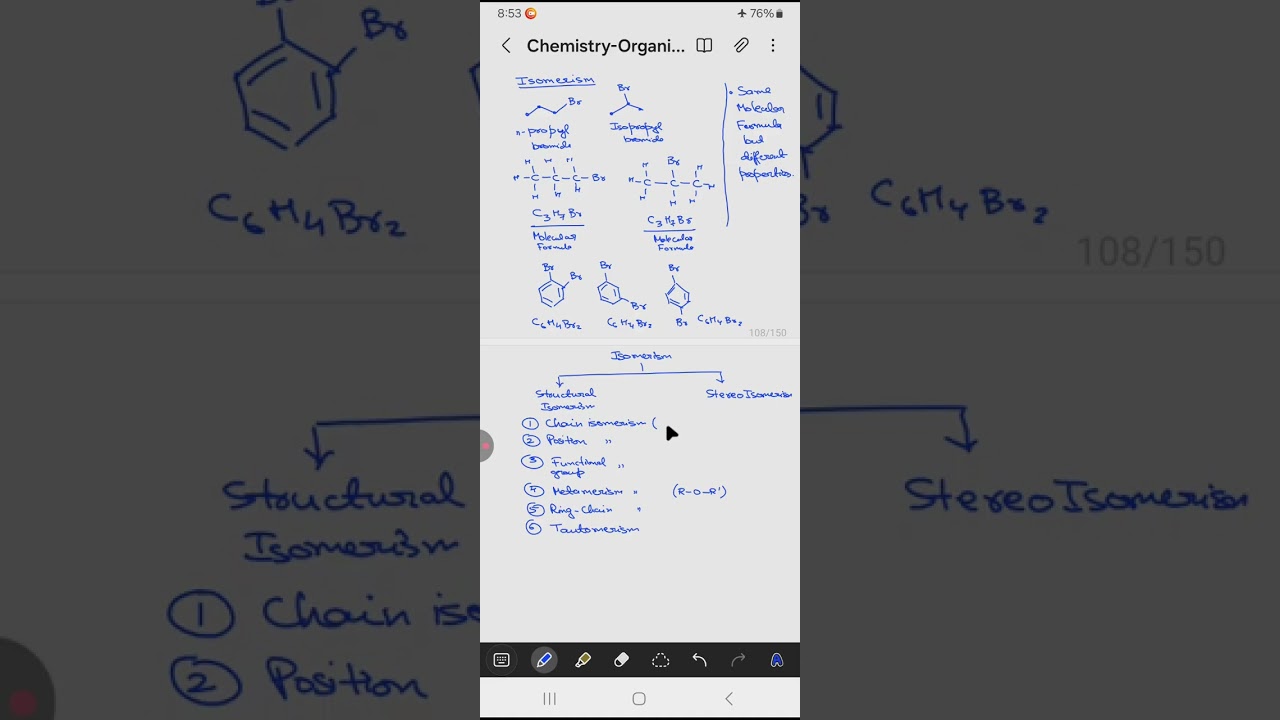 8:53
76%
Chemistry-Organi...
Isomerism
Br
Br
n-propyl
bromide
Isopropyl
bromide
• Same
Molecular
Formula
but
different
properties.
H H H
H-C-C-C-Br
H H H
H Br H
H-C-C-C-H
H H H
C3H7Br
Molecular
Formula
C3H7Br
Molecular
Formula
Br
Br
C6H4Br2
Br
Br
C6H4Br2
Br
Br
C6H4Br2
108/150
Isomerism
Structural
Isomerism
StereoIsomerism
① Chain isomerism (
② Position "
③ Functional "
group
④ Metamerism " (R-O-R')
⑤ Ring-Chain "
⑥ Tautomerism
Br
C6H4Br2
Structural
Isomerism
① Chain iso
② Position
Br
C6H4Br2
108/150
StereoIsomerism